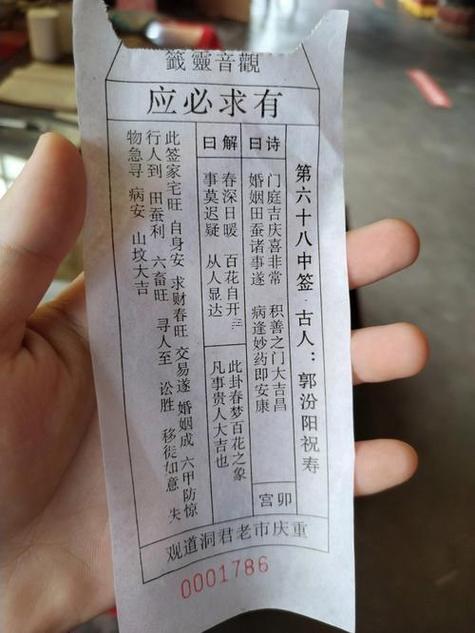 觀音靈籤
有求必应
第六十八中签 · 古人：郭汾阳祝寿
诗曰
门庭吉庆喜非常 积善之门大吉昌
婚姻田蚕诸事遂 病逢妙药即安康
卯宫
解曰
春深日暖 百花自开
事莫迟疑 从人显达
此卦春梦百花之象
凡事贵人大吉也
此签家宅旺 自身安 求财春旺 交易遂 婚姻成 六甲防惊
行人到 田蚕利 六畜旺 寻人至 讼胜 移徙如意 失
物急寻 病安 山坟大吉
重庆市老君洞道观
0001786